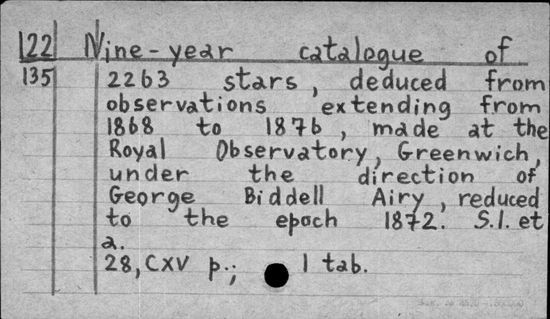 122 Nine-year catalogue of
135 2263 stars, deduced from
observations extending from
1868 to 1876, made at the
Royal Observatory, Greenwich,
under the direction of
George Biddell Airy, reduced
to the epoch 1872. S.l. et
a.
28, CXV p.; 1 tab.